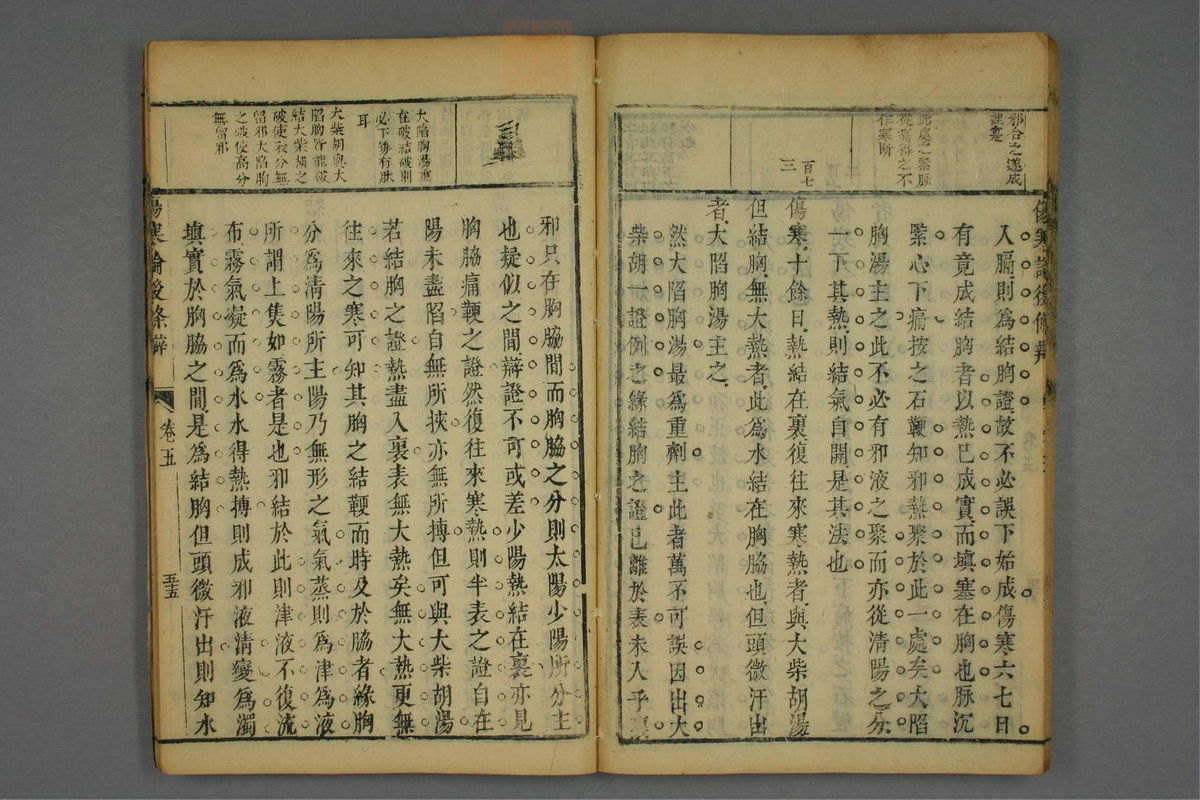 邪合之遂成
裡塞
此處之緊脉
從痛得之不
作寒斷
百七
三
入膈則爲結胸證故不必誤下始成傷寒六七日
有竟成結胸者以熱已成實而塡塞在胸也脉沉
緊心下痛按之石鞕知邪熱聚於此一處矣大陷
胸湯主之此不必有邪液之聚而亦從清陽之分
一下其熱則結氣自開是其法也
傷寒十餘日熱結在裏復往來寒熱者與大柴胡湯
但結胸無大熱者此爲水結在胸脇也但頭微汗出
者大陷胸湯主之
然大陷胸湯最爲重劑主此者萬不可誤因出大
柴胡一證例之緣結胸之證已離於表未入乎裏
大陷胸湯重
在破結破則
必下旁有肽
耳
大柴胡與大
陷胸皆能破
結大柴胡之
破使表分無
留邪大陷胸
之破使高分
無留邪
邪只在胸脇間而胸脇之分則太陽少陽所分主
也疑似之間辯證不可或差少陽熱結在裏亦見
胸脇痛鞕之證然復往來寒熱則半表之證自在
陽未盡陷自無所挾亦無所搏但可與大柴胡湯
若結胸之證熱盡入裏表無大熱矣無大熱更無
往來之寒可知其胸之結鞕而時及於脇者緣胸
分爲清陽所主陽乃無形之氣氣蒸則爲津爲液
所謂上焦如霧者是也邪結於此則津液不復流
布霧氣凝而爲水水得熱搏則成邪液清變爲濁
塡實於胸脇之間是爲結胸但頭微汗出則知水
傷寒論後條辯
卷五
五五